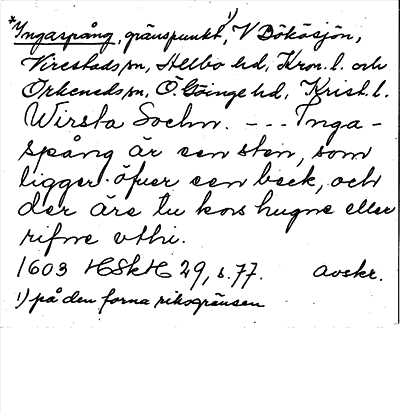 *Yngaspång, gränspunkt,¹) V Bökösjön,
Virestads sn, Allbo hd, Kron. l. och
Örkeneds sn, Ö. Göinge hd, Krist. l.
Wirsta Sochn. --- Inga-
spång är een sten, som
ligger öfuer een beck, och
der äre tu kors hugne eller
rifne vthi.
1603 HSkH 29, s. 77. avskr.
1) på den forna riksgränsen